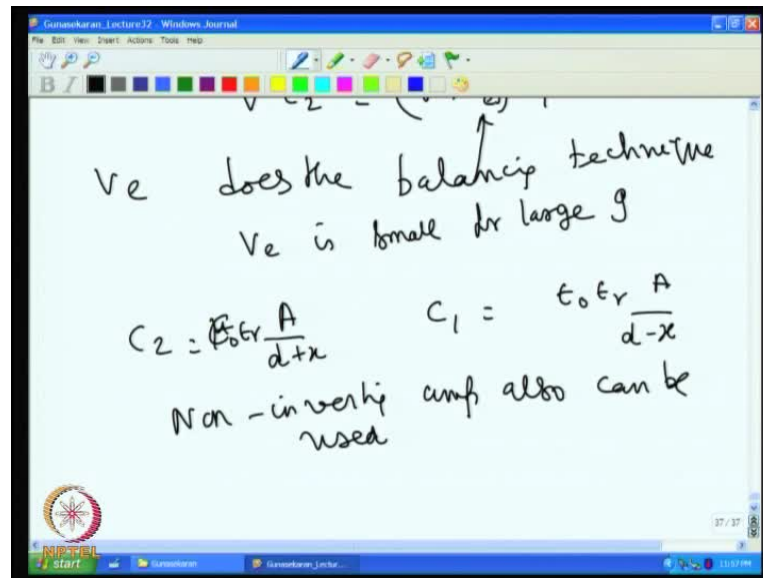 Gunasekaran_Lecture32 - Windows Journal
File Edit View Insert Actions Tools Help
B I
V C2 = (V
Ve does the balancing technique
Ve is small for large g
C2 = ϵ0ϵr A/(d+x) C1 = ϵ0ϵr A/(d-x)
Non-inverting amp also can be
used
37/37
NPTEL
start Gunasekaran Gunasekaran_Lectur... 11:57 PM